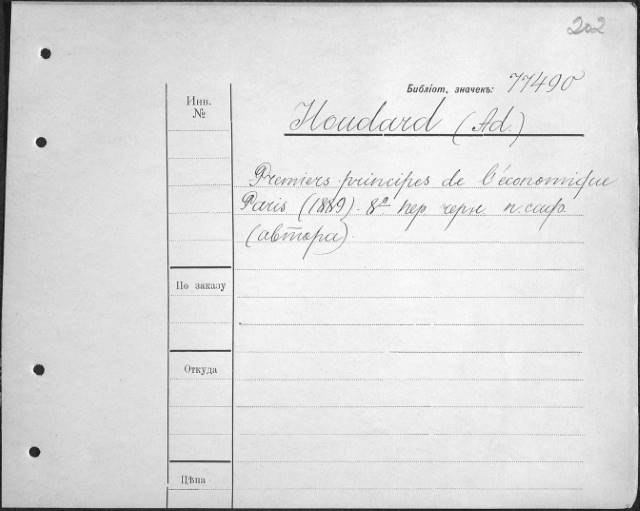 202
Библіот. значекъ: 77490
Инв.
№
Houdard (Ad.)
Premiers principes de l'économique
Paris (1889). 8º пер. черн. п. саф.
(автора).
По заказу
Откуда
Цѣна